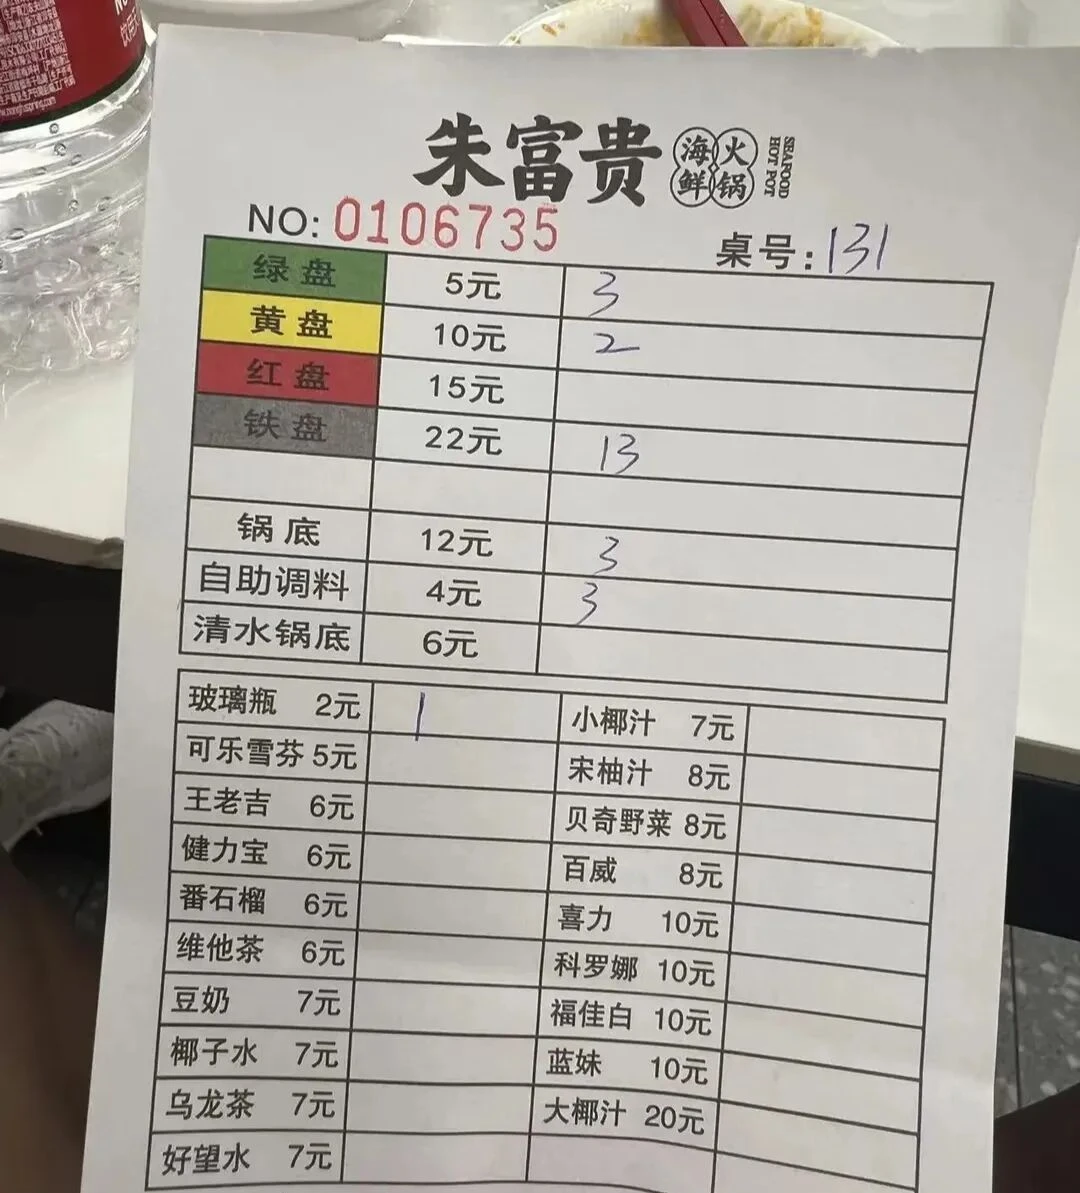 朱富贵 海鲜火锅 SEAFOOD HOT POT
NO: 0106735 桌号: 131
绿盘 5元 3
黄盘 10元 2
红盘 15元
铁盘 22元 13
锅底 12元 3
自助调料 4元 3
清水锅底 6元
玻璃瓶 2元 1 小椰汁 7元
可乐雪芬 5元 宋柚汁 8元
王老吉 6元 贝奇野菜 8元
健力宝 6元 百威 8元
番石榴 6元 喜力 10元
维他茶 6元 科罗娜 10元
豆奶 7元 福佳白 10元
椰子水 7元 蓝妹 10元
乌龙茶 7元 大椰汁 20元
好望水 7元